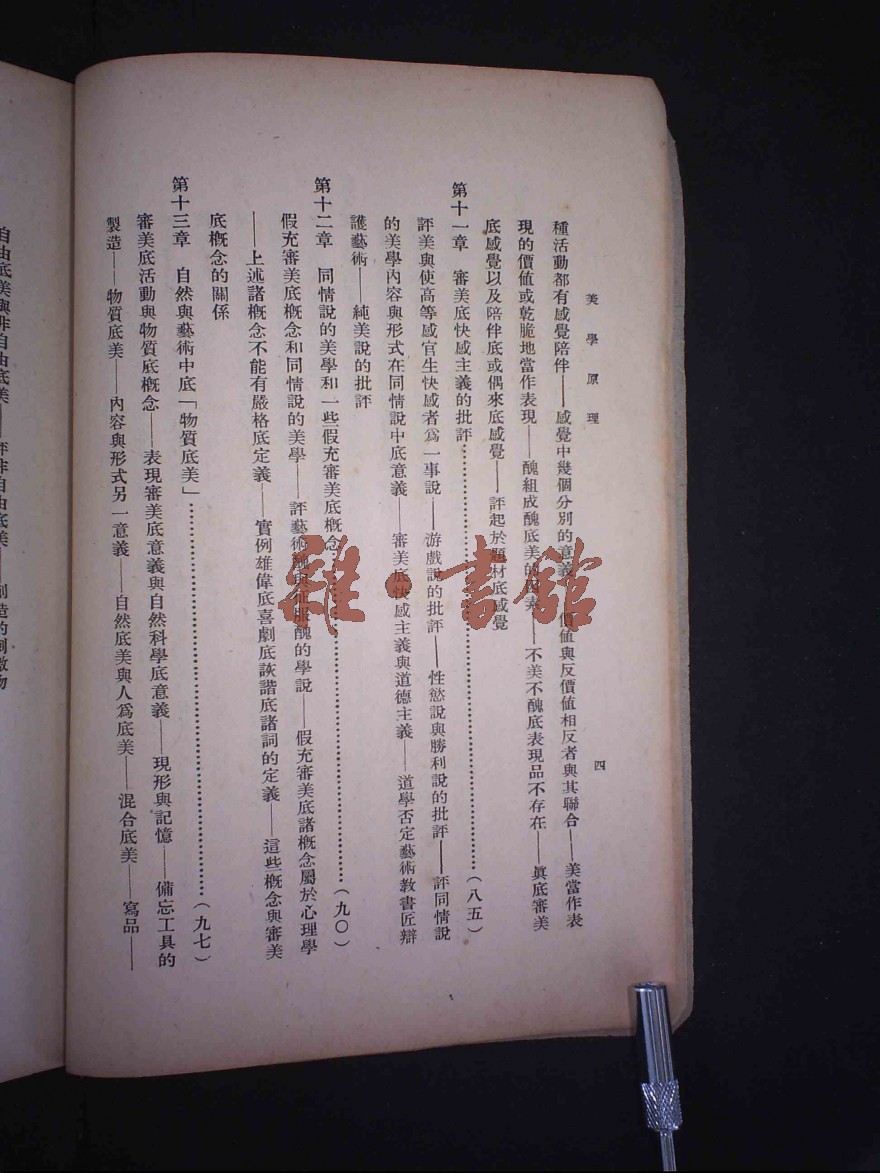 美學原理
四
種活動都有感覺陪伴——感覺中幾個分別的意義——價值與反價值相反者與其聯合——美當作表
現的價值或乾脆地當作表現——醜組成醜底美的因素——不美不醜底表現品不存在——眞底審美
底感覺以及陪伴底或偶來底感覺——評起於題材底感覺
第十一章 審美底快感主義的批評……(八五)
評美與使高等感官生快感者爲一事說——游戲說的批評——性慾說與勝利說的批評——評同情說
的美學內容與形式在同情說中底意義——審美底快感主義與道德主義——道學否定藝術教書匠辯
護藝術——純美說的批評
第十二章 同情說的美學和一些假充審美底槪念……(九〇)
假充審美底槪念和同情說的美學——評藝術醜與征服醜的學說——假充審美底諸槪念屬於心理學
——上述諸槪念不能有嚴格底定義——實例雄偉底喜劇底詼諧底諸詞的定義——這些槪念與審美
底槪念的關係
第十三章 自然與藝術中底「物質底美」……(九七)
審美底活動與物質底槪念——表現審美底意義與自然科學底意義——現形與記憶——備忘工具的
製造——物質底美——內容與形式另一意義——自然底美與人爲底美——混合底美——寫品——
自由底美與非自由底美——評非自由底美——
雜·書館